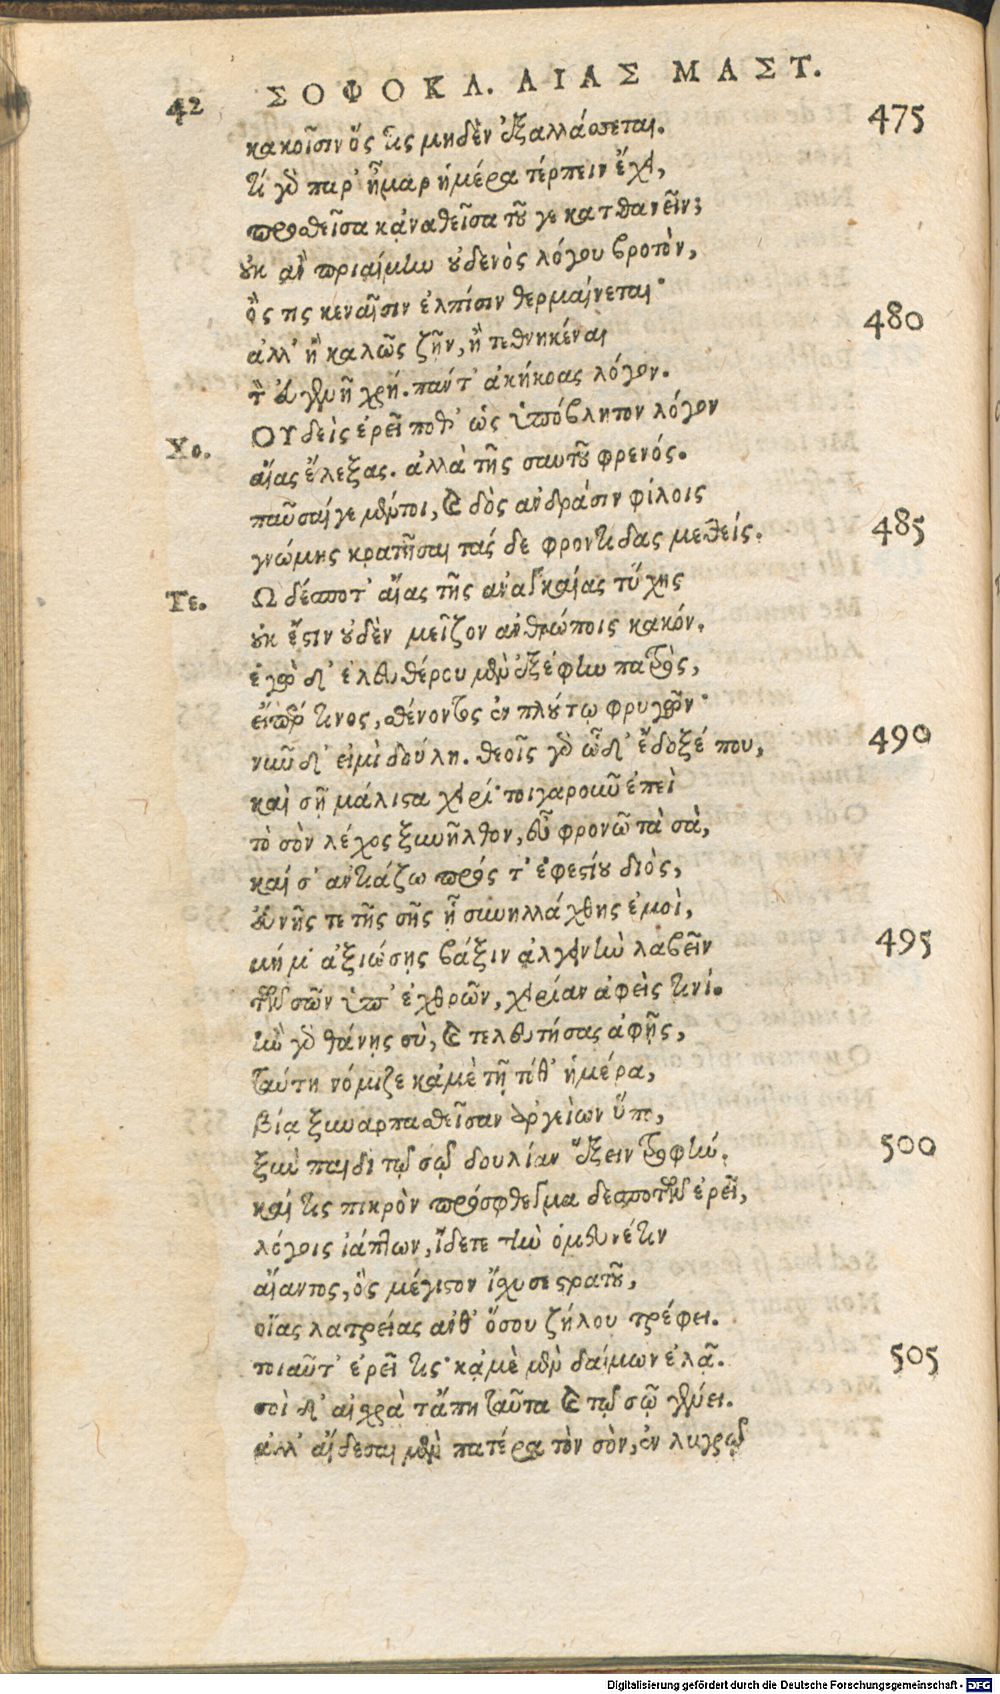 42 ΣΟΦΟΚΛ. ΑΙΑΣ ΜΑΣΤ.
κακοῖσιν ὅς τις μηδὲν ἐξαλλάσσεται. 475
τί γὰρ παρ' ἦμαρ ἡμέρα τέρπειν ἔχει,
προσθεῖσα κᾀναθεῖσα τοῦ γε κατθανεῖν;
οὐκ ἂν πριαίμην οὐδενὸς λόγου βροτὸν,
ὅς τις κεναῖσιν ἐλπίσιν θερμαίνεται·
ἀλλ' ἢ καλῶς ζῆν, ἢ τεθνηκέναι 480
τὸν εὐγενῆ χρή. πάντ' ἀκήκοας λόγον.
Χο. ΟΥδεὶς ἐρεῖ ποθ' ὡς ὑπόβλητον λόγον
αἴας ἔλεξας. ἀλλὰ τῆς σαυτοῦ φρενός.
παῦσαί γε μέντοι, καὶ δὸς ἀνδράσιν φίλοις
γνώμης κρατῆσαι τάς δε φροντίδας μεθείς. 485
Τε. Ω δέσποτ' αἴας τῆς ἀναγκαίας τύχης
οὐκ ἔστιν οὐδὲν μεῖζον ἀνθρώποις κακόν.
ἐγὼ δ' ἐλευθέρου μὲν ἐξέφην πατρὸς,
εἴπερ τινος, σθένοντος ἐν πλούτῳ φρυγῶν·
νῦν δ' εἰμὶ δούλη. θεοῖς γὰρ ὧδ' ἔδοξέ που, 490
καὶ σῇ μάλιστα χειρί· τοιγαροῦν ἐπεὶ
τὸ σὸν λέχος ξυνῆλθον, εὖ φρονῶ τὰ σὰ,
καί σ' ἀντιάζω πρός τ' ἐφεστίου διὸς,
εὐνῆς τε τῆς σῆς ᾗ συνηλλάχθης ἐμοὶ,
μή μ' ἀξιώσῃς βάξιν ἀλγεινὴν λαβεῖν 495
τῶν σῶν ὑπ' ἐχθρῶν, χειρίαν ἀφεὶς τινί.
ἢν γὰρ θάνῃς σὺ, καὶ τελευτήσας ἀφῇς,
ταύτῃ νόμιζε κᾀμὲ τῇ τόθ' ἡμέρᾳ,
βίᾳ ξυναρπασθεῖσαν ἀργείων ὕπο,
ξὺν παιδὶ τῷ σῷ δουλίαν ἕξειν τροφήν. 500
καί τις πικρὸν πρόσφθεγμα δεσποτῶν ἐρεῖ,
λόγοις ἰάπτων, ἴδετε τὴν ὁμευνέτιν
αἴαντος, ὃς μέγιστον ἴσχυσε στρατοῦ,
οἵας λατρείας ἀνθ' ὅσου ζήλου τρέφει.
τοιαῦτ' ἐρεῖ τις· κᾀμὲ μὲν δαίμων ἐλᾷ. 505
σοὶ δ' αἰσχρὰ τἄπη ταῦτα καὶ τῷ σῷ γένει.
ἀλλ' αἴδεσαι μὲν πατέρα τὸν σὸν, ἐν λυγρῷ
Digitalisierung gefördert durch die Deutsche Forschungsgemeinschaft - DFG